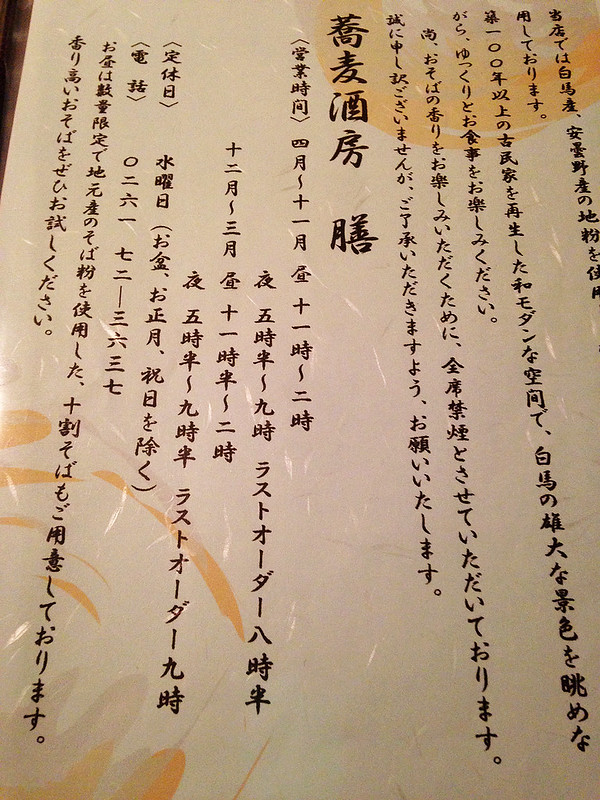 当店では白馬産、安曇野産の地粉を使
用しております。
築一〇〇年以上の古民家を再生した和モダンな空間で、白馬の雄大な景色を眺めな
がら、ゆっくりとお食事をお楽しみください。
尚、おそばの香りをお楽しみいただくために、全席禁煙とさせていただいております。
誠に申し訳ございませんが、ご了承いただきますよう、お願いいたします。
蕎麦酒房 膳
〈営業時間〉 四月〜十一月 昼 十一時〜二時
夜 五時半〜九時 ラストオーダー八時半
十二月〜三月 昼 十一時半〜二時
夜 五時半〜九時半 ラストオーダー九時
〈定休日〉 水曜日（お盆、お正月、祝日を除く）
〈電 話〉 〇二六一 七二―三六三七
お昼は数量限定で地元産のそば粉を使用した、十割そばもご用意しております。
香り高いおそばをぜひお試しください。